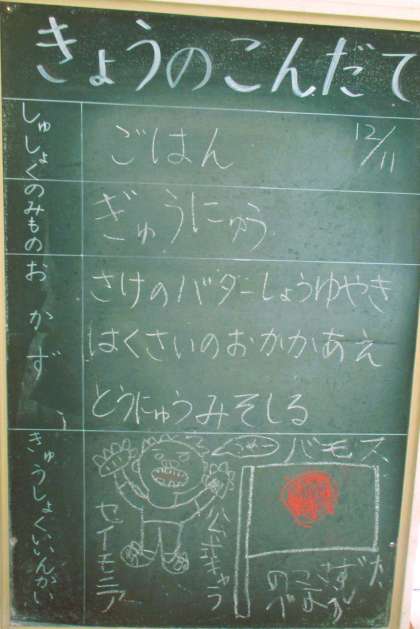 きょうのこんだて
しゅしょく
ごはん
12/11
のみもの
ぎゅうにゅう
おかず
さけのバターしょうゆやき
はくさいのおかかあえ
とうにゅうみそしる
きゅうしょくいいんかい
セイモニア
公立キャラ
バモス